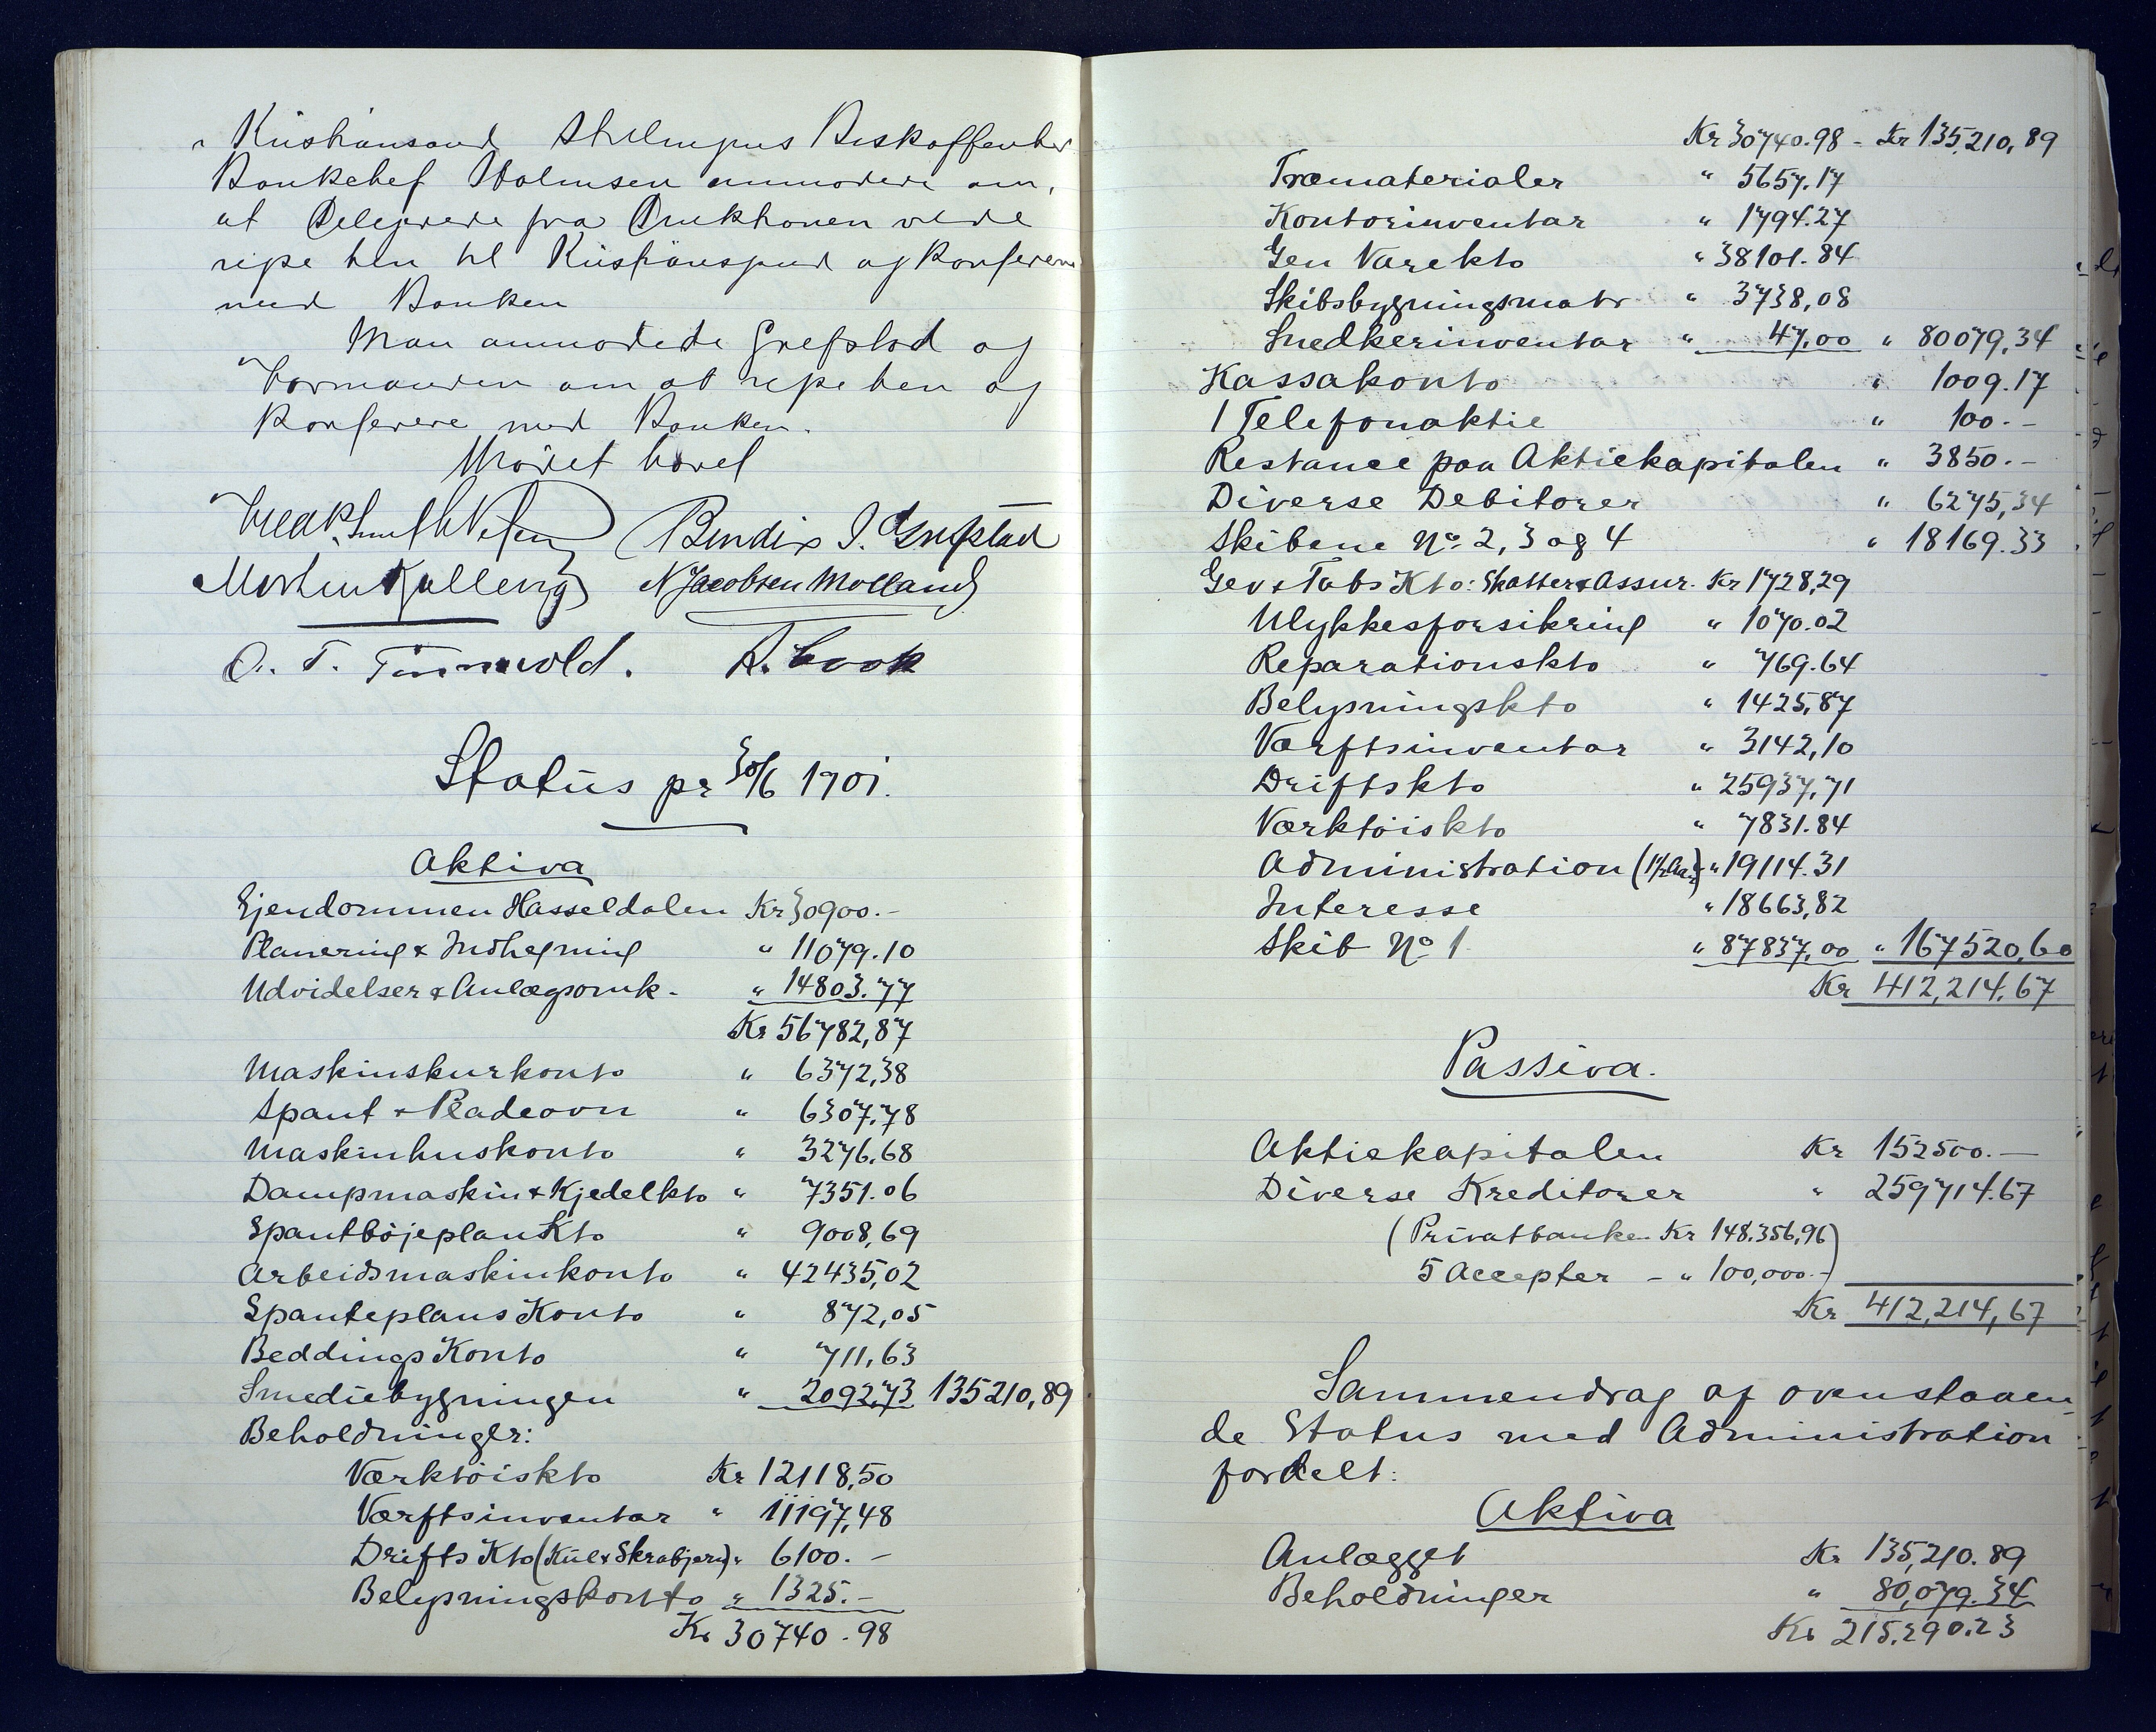 Kristiansand Skelnegnes Beskaffenhed
Bankchef Holmsen anmodede om,
at Delegerede fra Direktionen vilde
rejse hen til Kristiansand og konferere
med Banken
Man anmodede Grefstad og
Formanden om at rejse hen og
konferere med Banken.
Mödet hævet
Bendix J. Grefstad
Morten Kallevig N Jacobsen Molland
O. T. Tönnevold. A. Crook
Status pr 30/6 1901.
Aktiva
Ejendommen Hasseldalen Kr 30900.-
Planering & Indhegning " 11079.10
Udvidelser & Anlægsomk. " 14803.77
Kr 56782,87
Maskinskurkonto " 6372,38
Spant & Pladeovn " 6307.78
Maskinhuskonto " 3276.68
Dampmaskin & Kjedelkto " 7351.06
Spantböjeplan Kto " 9008,69
Arbeidsmaskinkonto " 42435,02
Spanteplans Konto " 872,05
Beddings Konto " 711,63
Smediebygningen " 2092,73 135210,89
Beholdninger:
Værktöiskto Kr 12118,50
Værftsinventar " 11197,48
Drifts Kto (Kul & Skrabjern) " 6100.-
Belysningskonto " 1325.-
Kr 30740.98
Kr 30740.98 - Kr 135,210,89
Træmaterialer " 5657.17
Kontorinventar " 1794.27
Gen Varekto " 38101.84
Skibsbygningsmatr " 3738,08
Snedkerinventar " 47,00 " 80079,34
Kassakonto " 1009.17
1 Telefonaktie " 100.-
Restance paa Aktiekapitalen " 3850.-
Diverse Debitorer " 6275,34
Skibene No 2, 3 og 4 " 18169.33
Gev & Tabs Kto: Skatter & Assur. Kr 1728,29
Ulykkesforsikring " 1070.02
Reparationskto " 769.64
Belysningskto " 1425,87
Værftsinventar " 3142,10
Driftskto " 25937,71
Værktöiskto " 7831.84
Administration (1½ Aar) " 19114.31
Interesse " 18663,82
Skib No 1 " 87837,00 " 167520,60
Kr 412,214.67
Passiva.
Aktiekapitalen Kr 152500.-
Diverse Kreditorer " 259714.67
(Privatbanken Kr 148.356,96)
5 Accepter - " 100,000.-)
Kr 412,214,67
Sammendrag af ovenstaaen-
de Status med Administration
fordelt:
Aktiva
Anlægget Kr 135,210.89
Beholdninger " 80,079.34
Kr 215.290.23